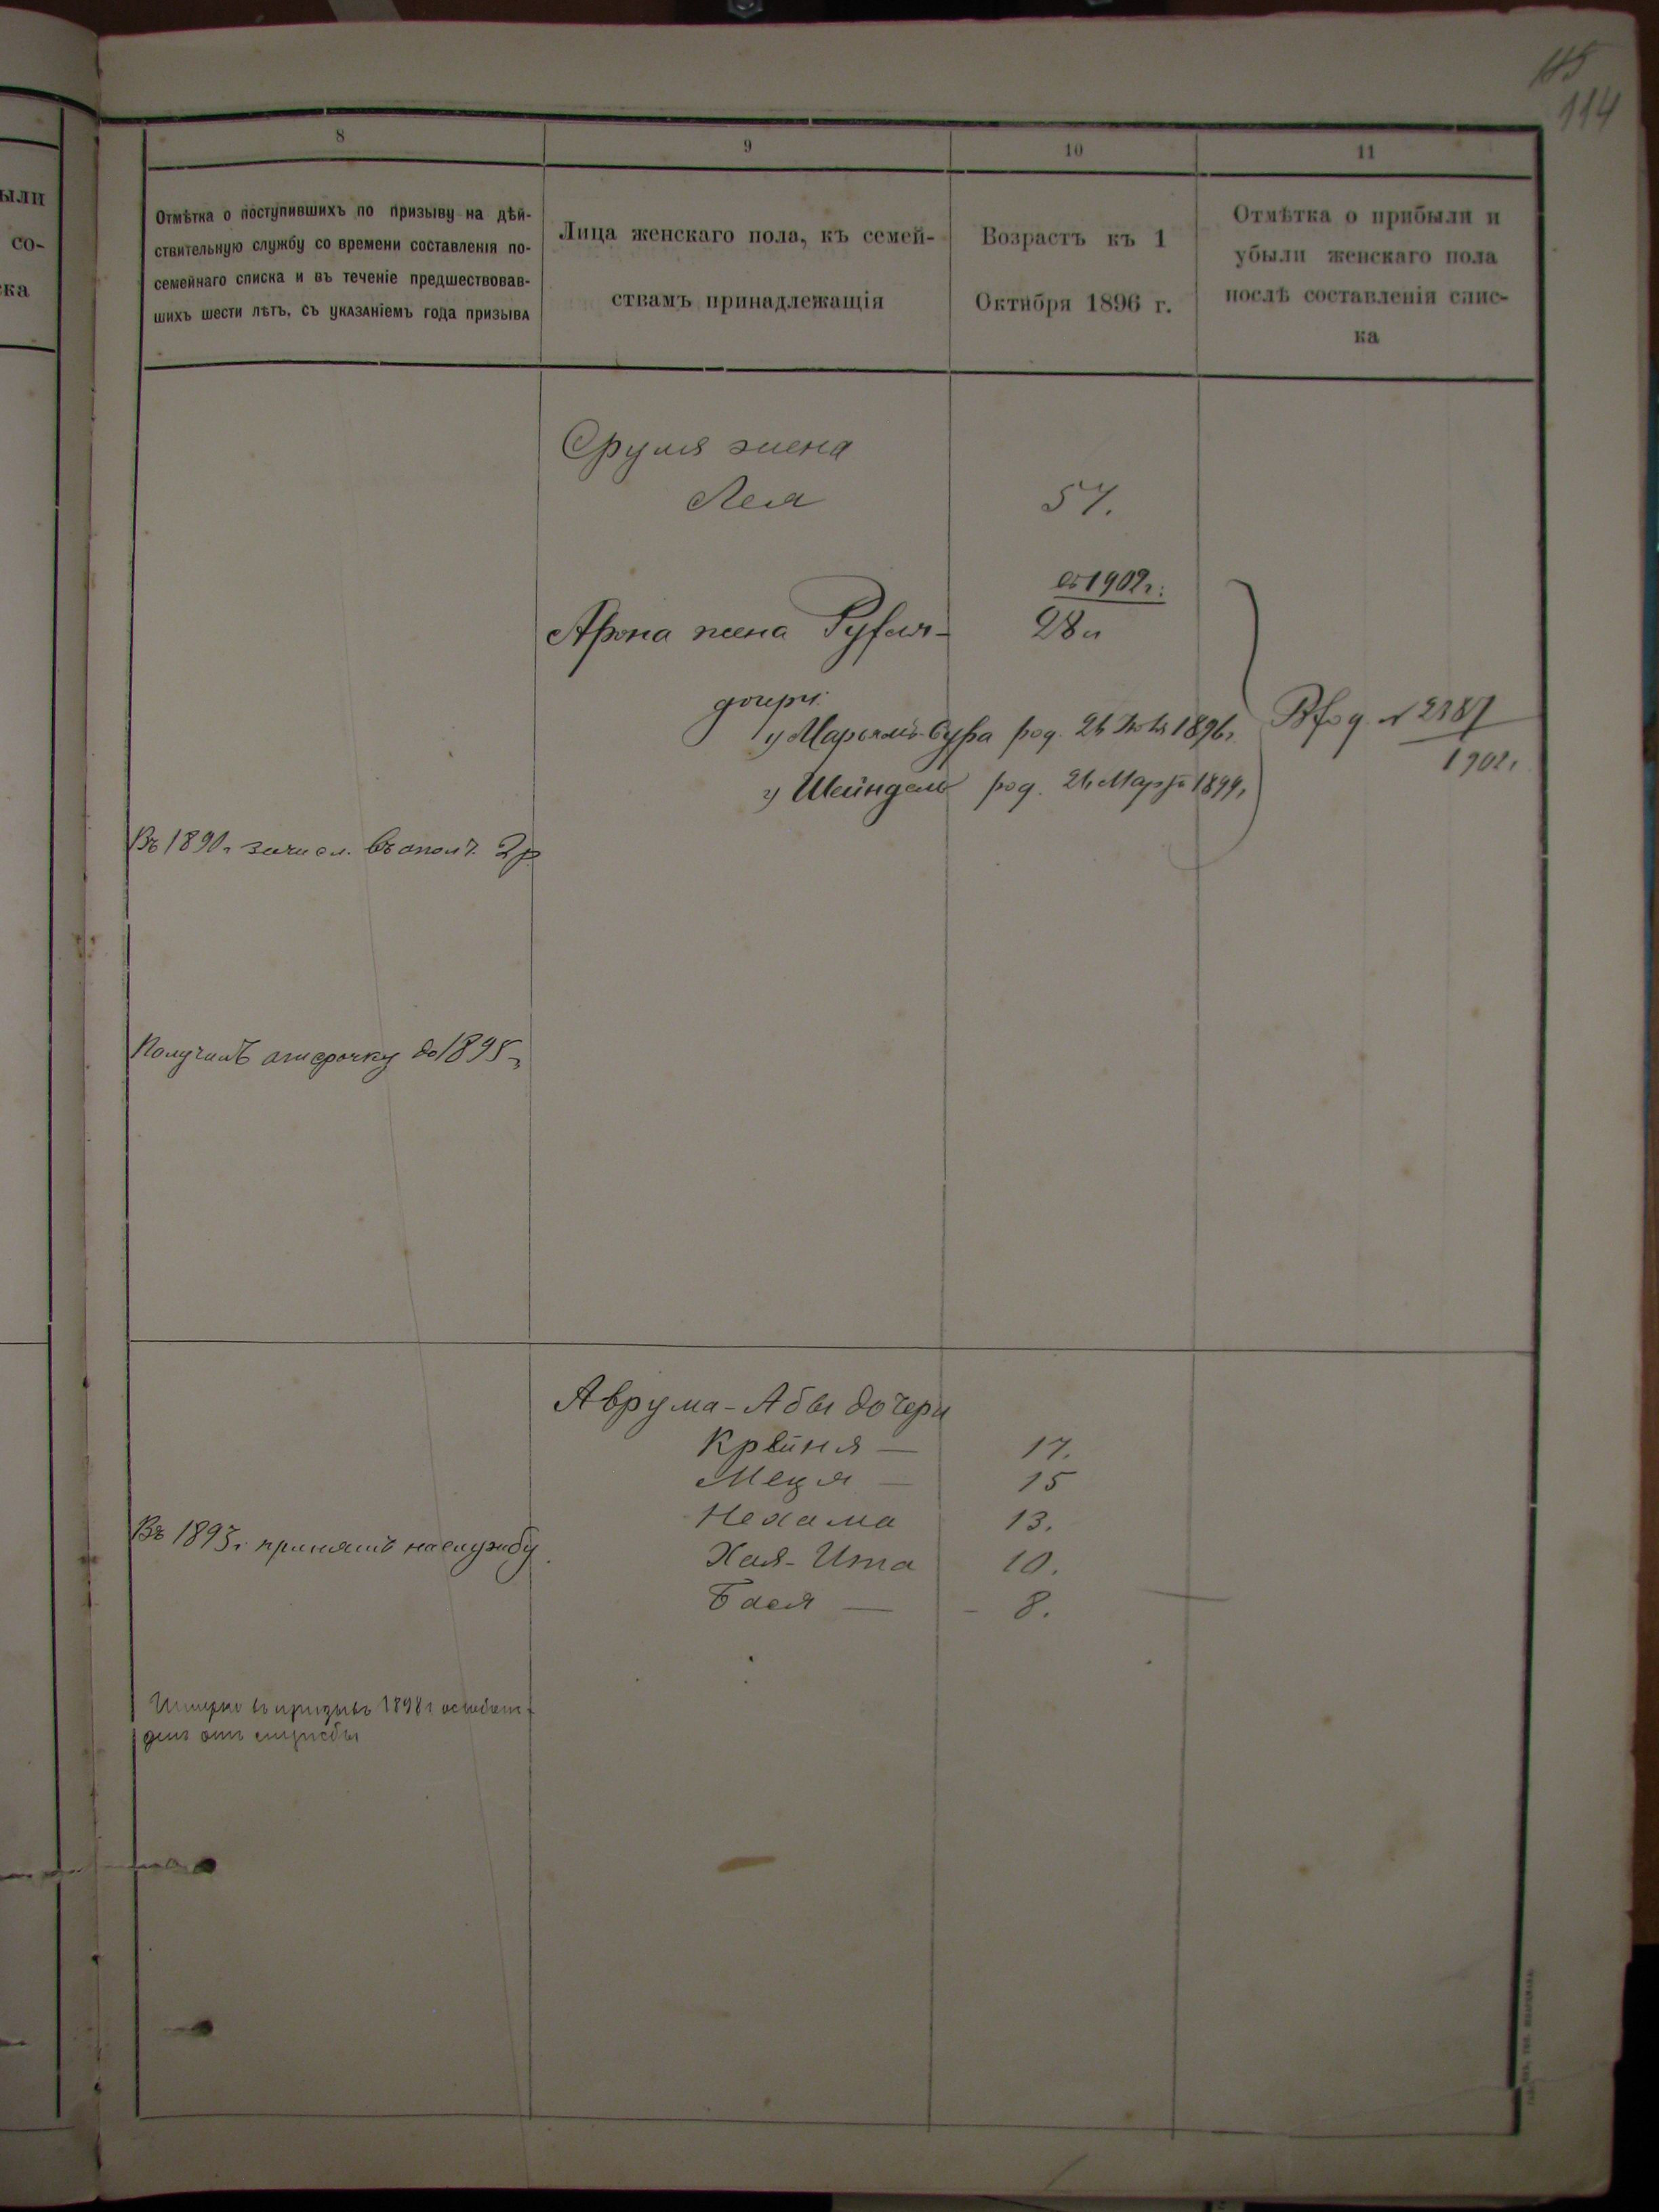 115
114
8
9
10
11
Отмѣтка о поступившихъ по призыву на дѣй-
ствительную службу со времени составленія по-
семейнаго списка и въ теченіе предшествовав-
шихъ шести лѣтъ, съ указаніемъ года призыва
Лица женскаго пола, къ семей-
ствамъ принадлежащія
Возрастъ къ 1
Октября 1896 г.
Отмѣтка о прибыли и
убыли женскаго пола
послѣ составленія спис-
ка
ыли
со-
ска
Сруля жена
Лея 57.
въ 1902 г.
Арона жена Рухля - 28 л
дочери
1) Марьямъ-Сура род. 1896 г.
2) Шейндель род. 21 Марта 1899 г.
род. № 2387
1902 г.
Въ 1890 г. зачисл. въ ополч. 2 р.
Получилъ отсрочку до 1895 г.
Аврума-Абы дочери
Крейня — 17.
Меця — 15
Нехама 13.
Хая-Ита 10.
Бася — - 8.
Въ 1893 г. принятъ на службу.
въ призывъ 1898 г освобож-
денъ отъ службы